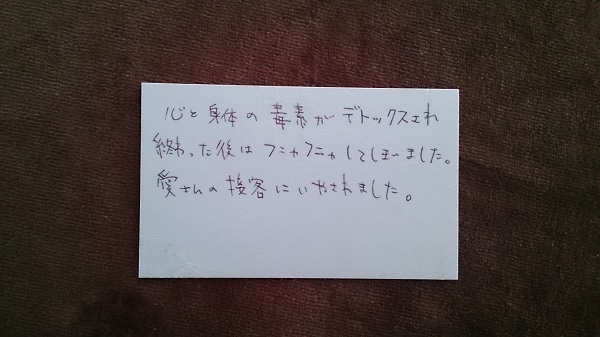 心と身体の毒素がデトックスされ
終わった後はフニャフニャしてしまいました。
愛さんの接客にいやされました。